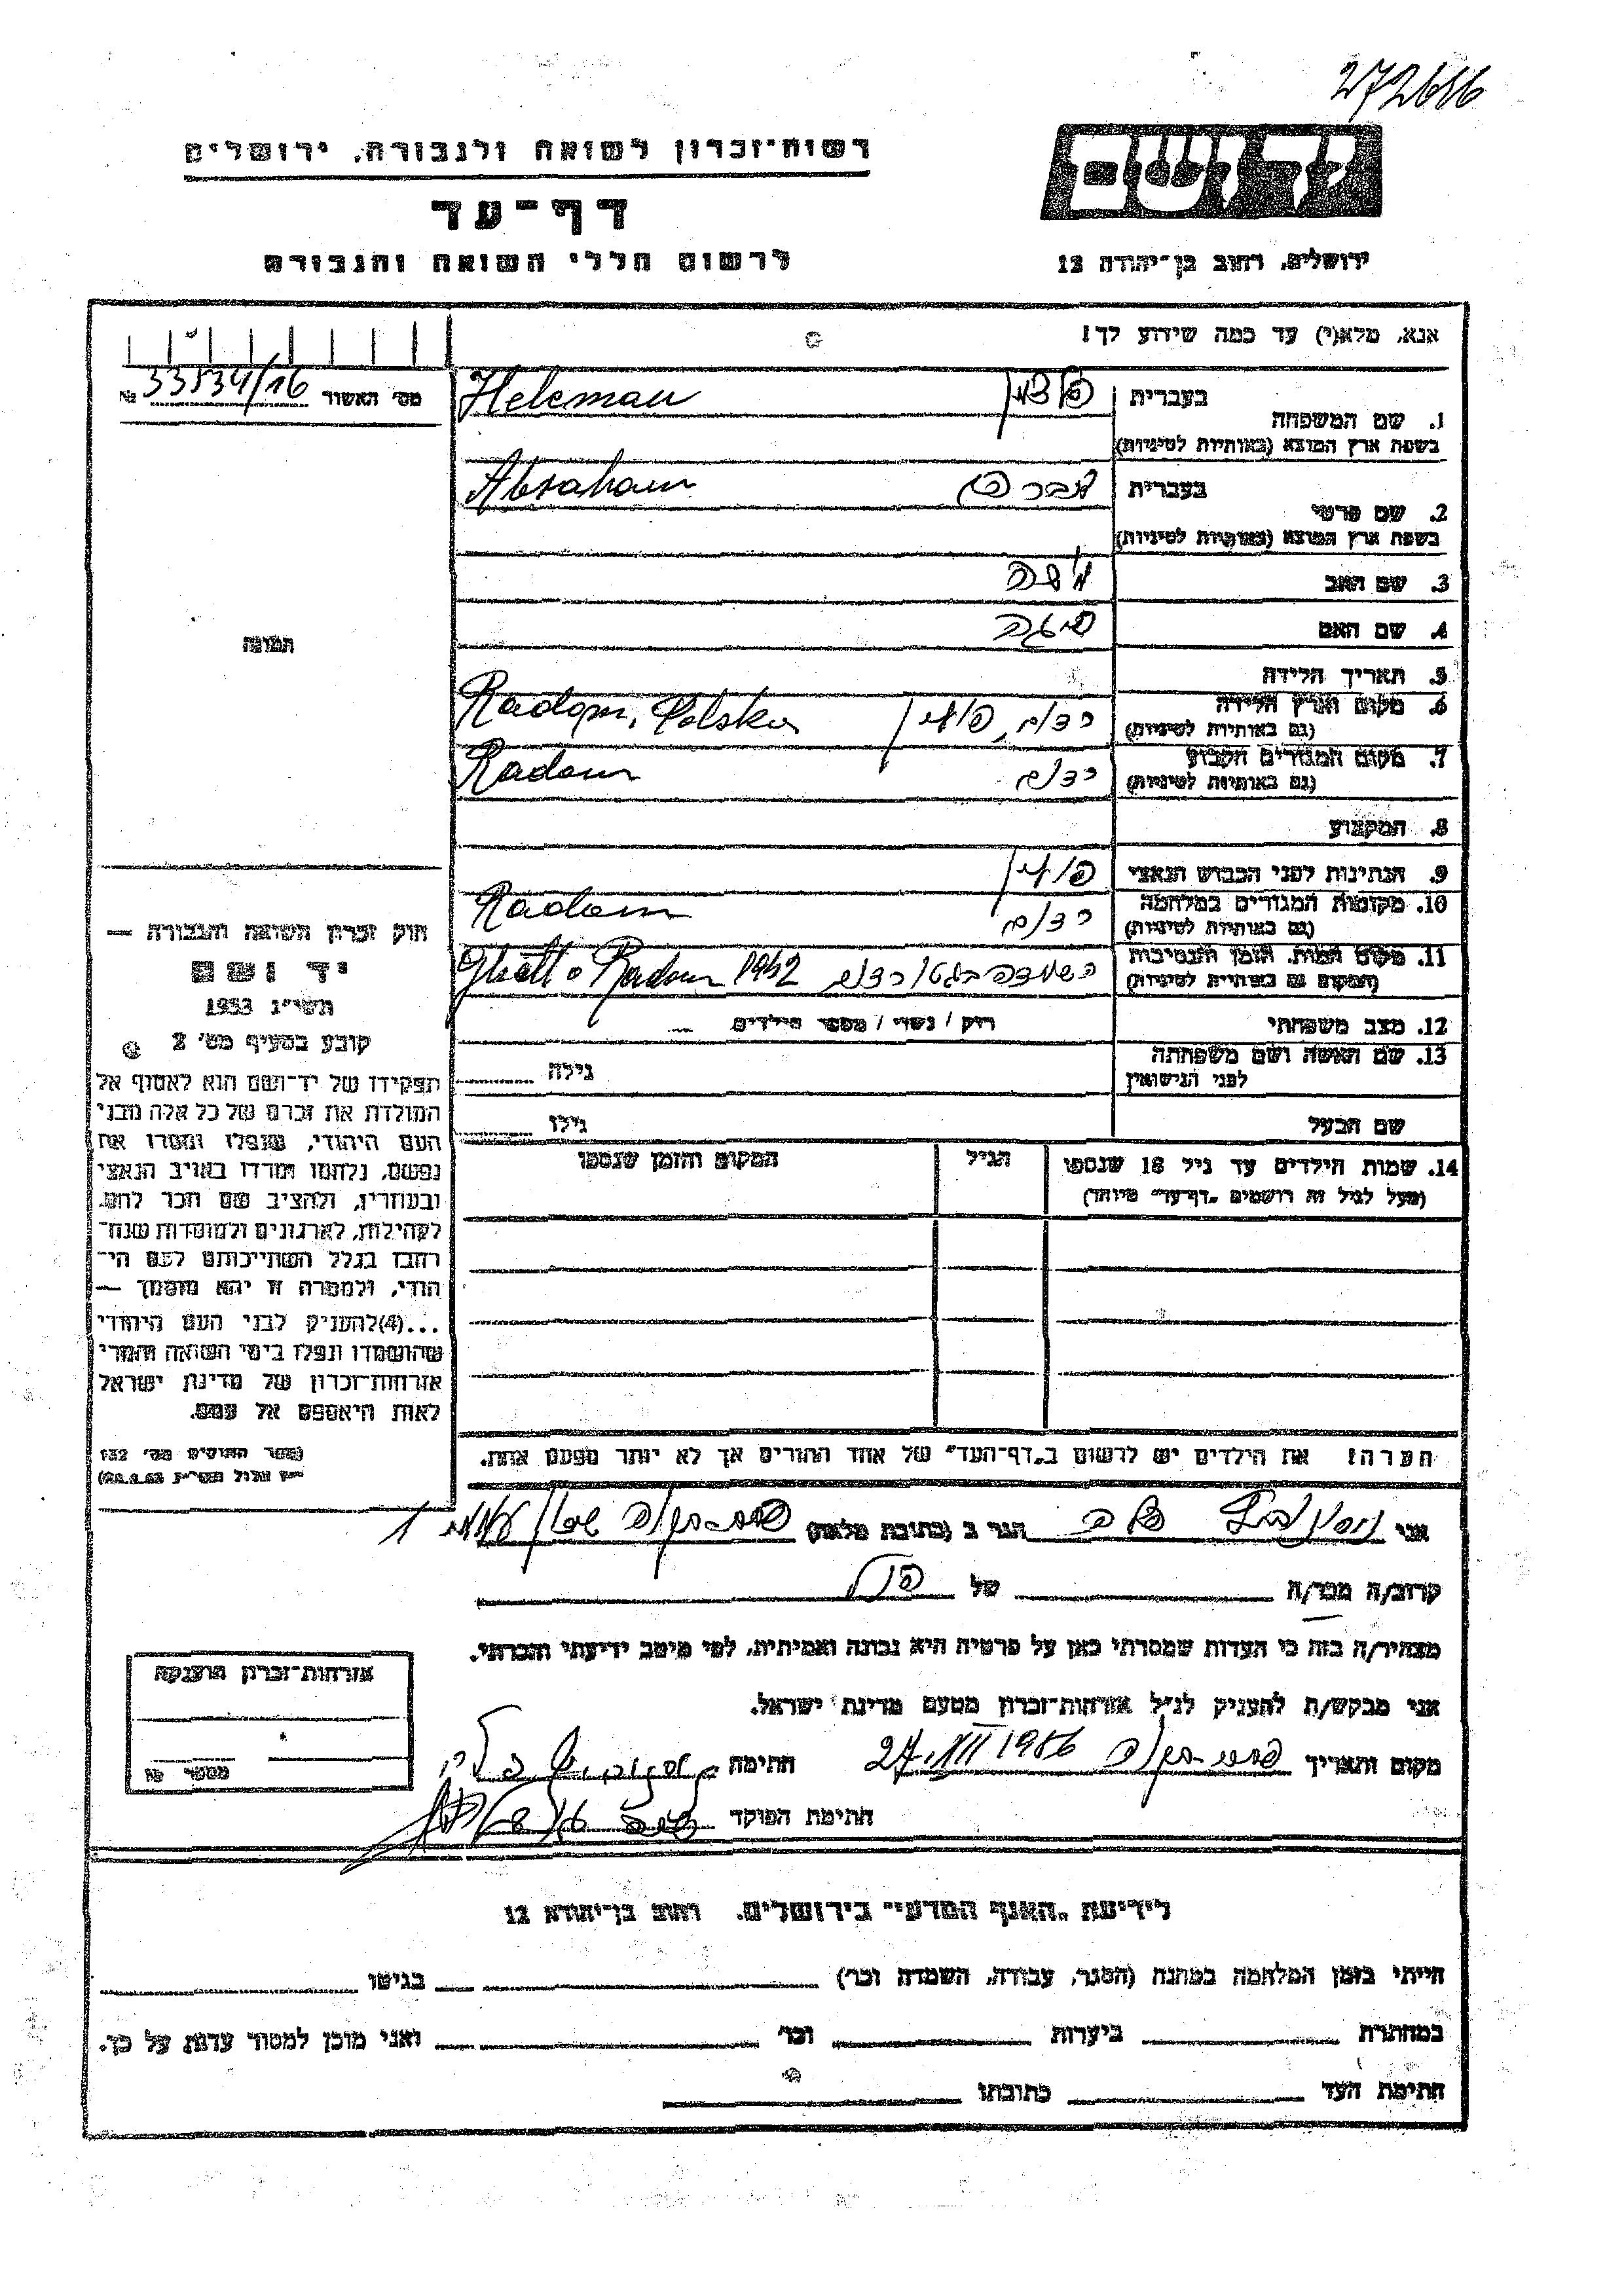 272616
רשות-זכרון לשואה ולגבורה, ירושלים
דף-עד
לרשום חללי השואה והגבורה
יד ושם
ירושלים, רחוב בן-יהודה 12
אנא, מלא(י) עד כמה שידוע לך!
מס' האשור 33534/16 №
1. שם המשפחה
בעברית
בשפת ארץ המוצא (באותיות לטיניות)
Heleman
2. שם פרטי
בעברית אברהם
בשפת ארץ המוצא (באותיות לטיניות)
Abraham
3. שם האב משה
4. שם האם
5. תאריך הלידה
6. מקום וארץ הלידה
(גם באותיות לטיניות)
רדום, פולין Radom, Polska
7. מקום המגורים הקבוע
(גם באותיות לטיניות)
רדום Radom
8. המקצוע
9. הנתינות לפני הכבוש הנאצי פולין
10. מקומות המגורים במלחמה
(גם באותיות לטיניות)
רדום Radom
11. מקום המות, הזמן והנסיבות
(המקום גם באותיות לטיניות)
השמדה בגטו רדום Ghetto Radom 1942
12. מצב משפחתי רווק / נשוי / מספר הילדים
13. שם האשה ושם משפחתה
לפני הנישואין
גילה
שם הבעל גילו
14. שמות הילדים עד גיל 18 שנספו
(מעל לגיל זה רושמים „דף-עד" מיוחד)
הגיל
המקום והזמן שנספו
הערה: את הילדים יש לרשום ב„דף-העד" של אחד ההורים אך לא יותר מפעם אחת.
תמונה
חוק זכרון השואה והגבורה —
יד ושם
תשי"ג 1953
קובע בסעיף מס' 2
תפקידו של יד-ושם הוא לאסוף אל
המולדת את זכרם של כל אלה מבני
העם היהודי, שנפלו ומסרו את
נפשם, נלחמו ומרדו באויב הנאצי
ובעוזריו, ולהציב שם וזכר להם,
לקהילות, לארגונים ולמוסדות שנח-
רבו בגלל השתייכותם לעם הי-
הודי, ולמטרה זו יהא מוסמך —
...(4) להעניק לבני העם היהודי
שהושמדו ונפלו בימי השואה והמרי
אזרחות-זכרון של מדינת ישראל
לאות היאספם אל עמם.
(ספר החוקים מס' 132
אני
הגר ב (כתובת מלאה) 1
קרוב/ה מכר/ה של
מצהיר/ה בזה כי העדות שמסרתי כאן על פרטיה היא נכונה ואמיתית, לפי מיטב ידיעתי והכרתי.
אני מבקש/ת להעניק לנ"ל אזרחות-זכרון מטעם מדינת ישראל.
מקום ותאריך 27.XII 1956 חתימה
חתימת הפוקד
אזרחות-זכרון הוענקה
מספר №
לידיעת „האגף המדעי" בירושלים, רחוב בן-יהודה 12
הייתי בזמן המלחמה במחנה (הסגר, עבודה, השמדה וכו') בגיטו
במחתרת ביערות וכו' ואני מוכן למסור עדות על כך.
חתימת העד כתובתו